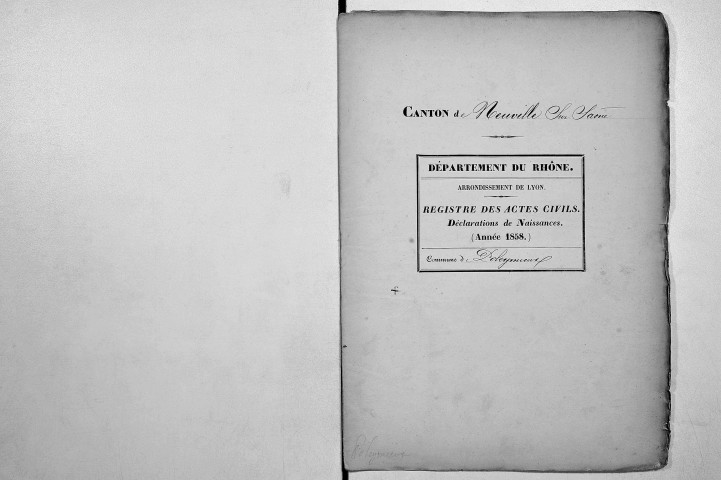 CANTON de Neuville Sur Saône
DÉPARTEMENT DU RHÔNE.
ARRONDISSEMENT DE LYON.
REGISTRE DES ACTES CIVILS.
Déclarations de Naissances.
(Année 1858.)
Commune d Poleymieux
Poleymieux